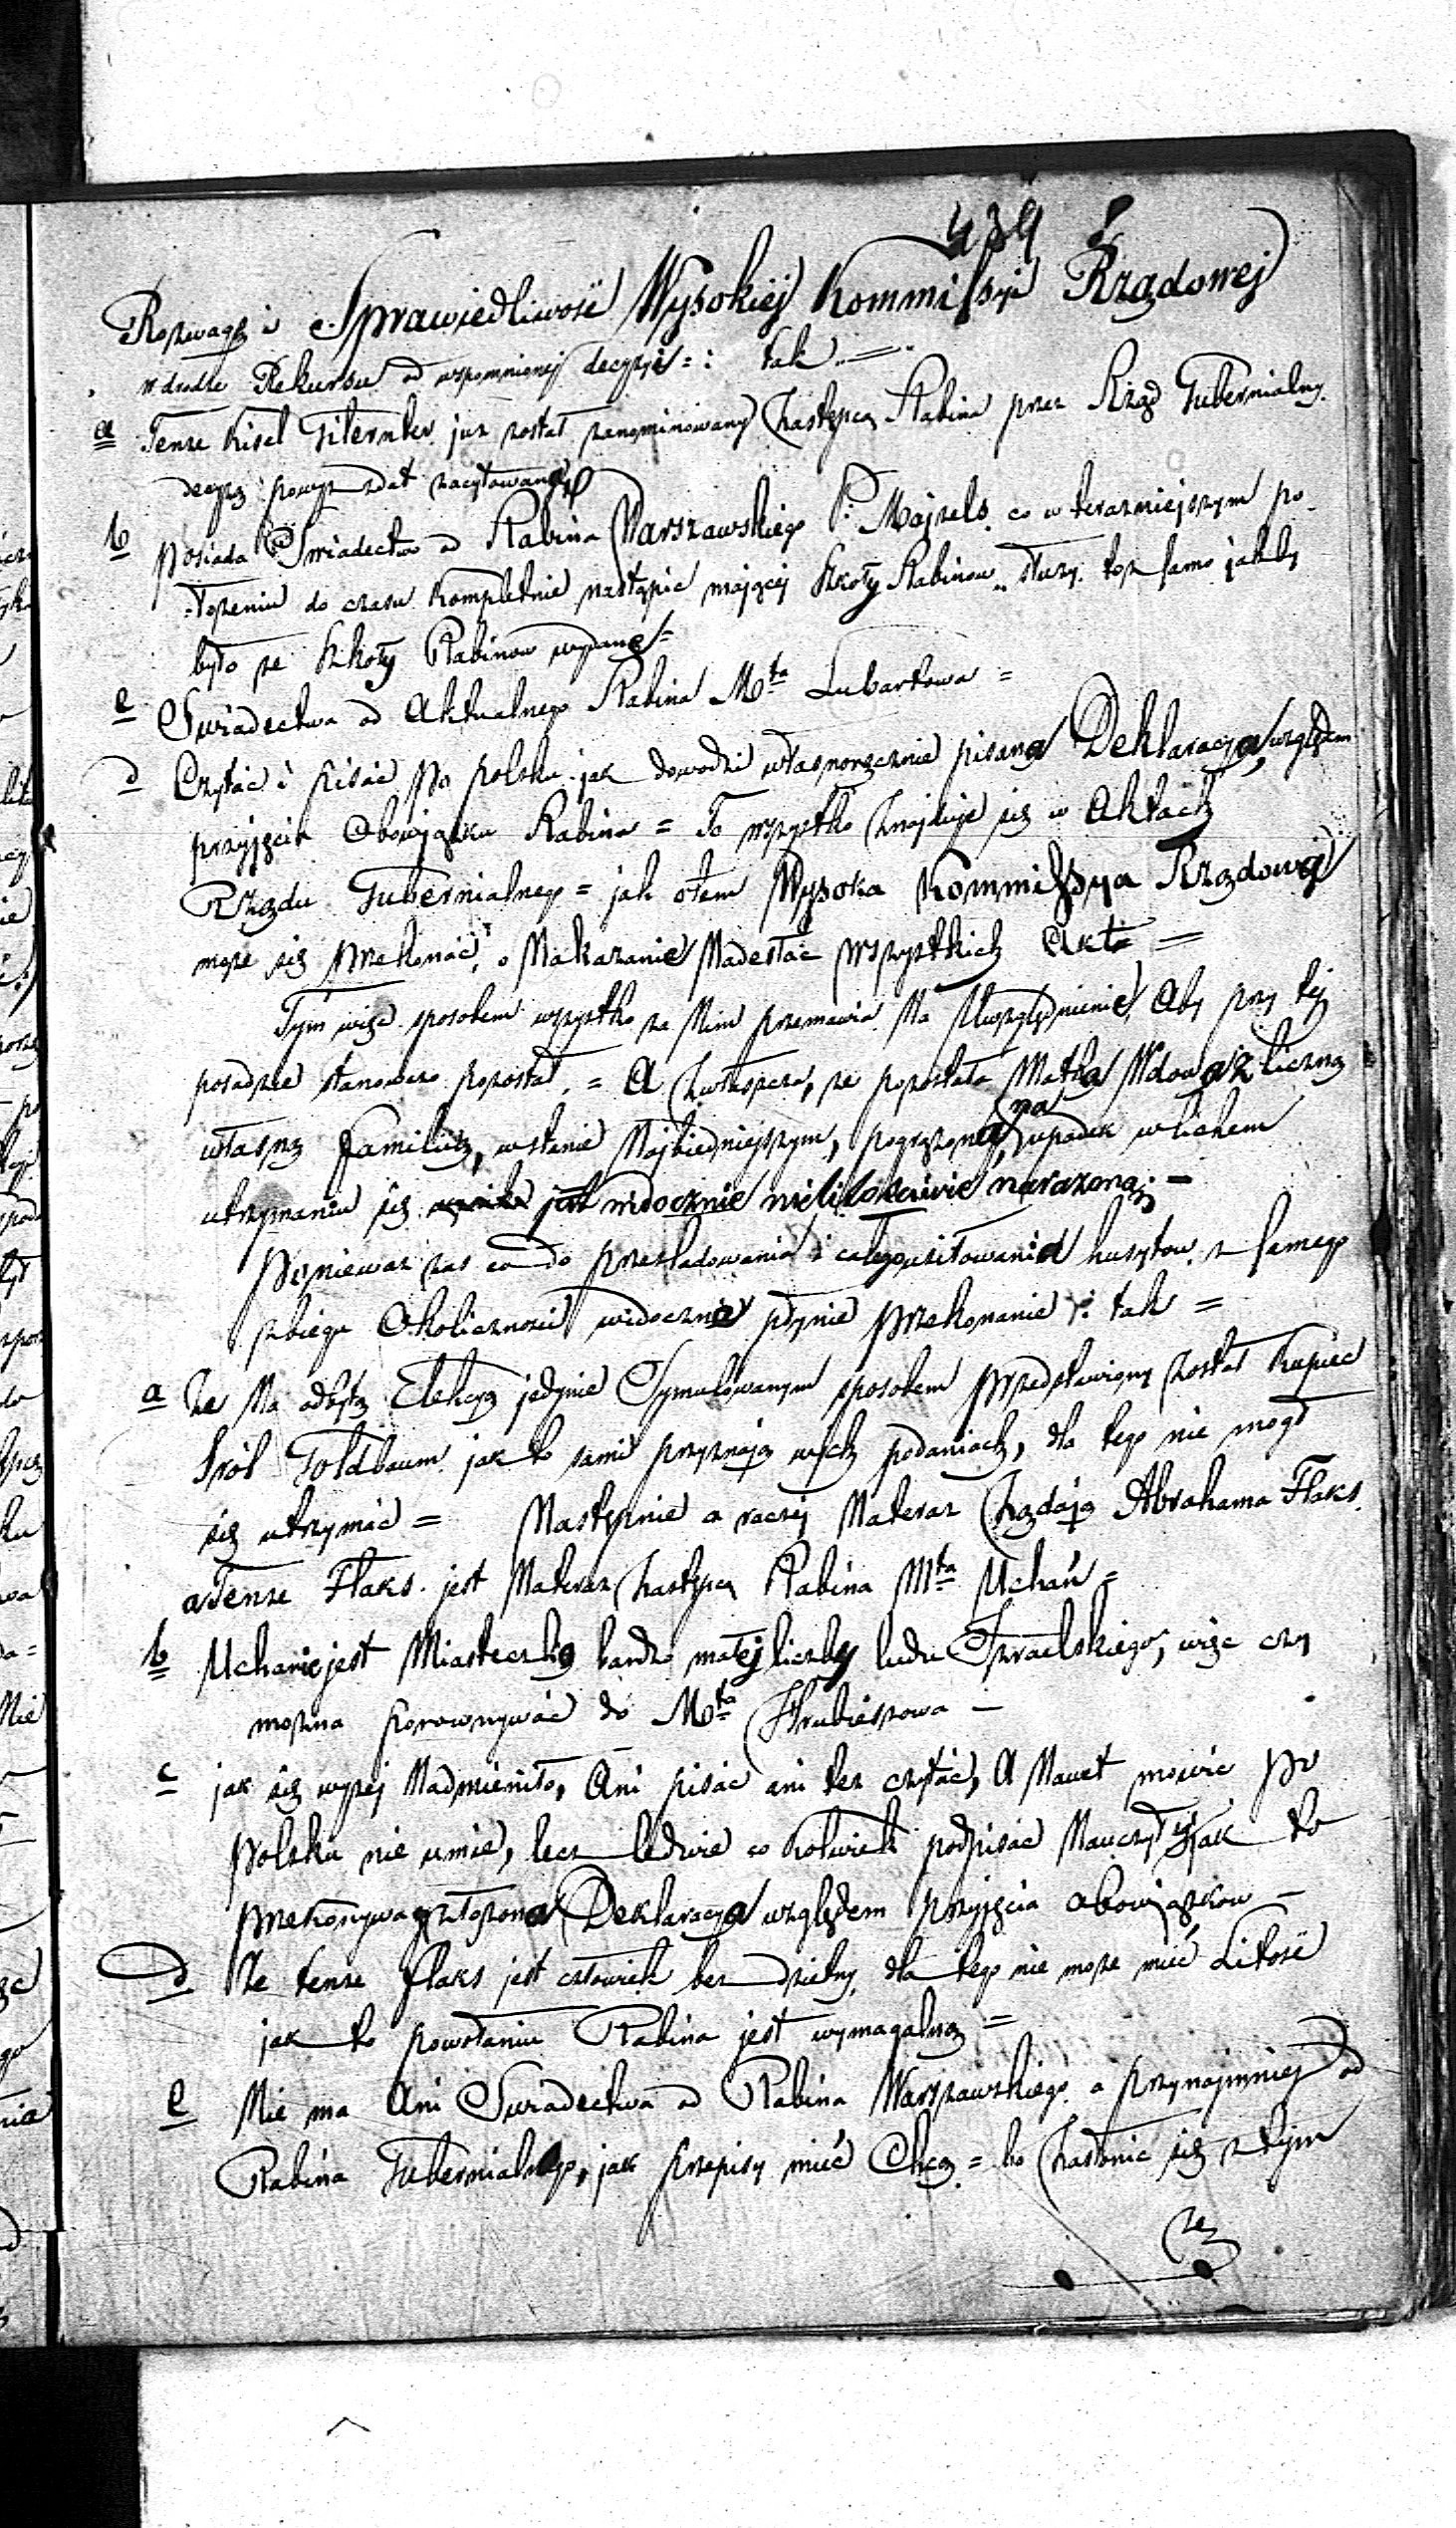 439
Rozwagę i Sprawiedliwość Wysokiej Kommissyi Rządowej
w drodze Rekursu od wspomnionej decyzyi =: tak =
a Tenże Kisel już został zanominowany Zastępcą Rabina przez Rząd Gubernialny
decyzą powyż zdat zacytowaną
b posiada Świadectwo od Rabina Warszawskiego P: Majzels. co w teraźniejszym po
łożeniu do czasu kompletnie nastąpić mającej Szkoły Rabinów służy toż samo jakby
było ze Szkoły Rabinów wydane =
c Świadectwa od Aktualnego Rabina Mta Lubartowa =
d Czytać i pisać po polsku jak dowodzi własnoręcznie pisana Deklaracya, względem
przyjęcia Obowiązku Rabina = To wszystko Znajduje się w Aktach
Rządu Gubernialnego = jak otem Wysoka Kommissya Rządowa
może się przekonać, o Nakazanie Nadesłać wszystkich Akta =
Tym więc sposobem wszystko za Nim przemawia Na Uwzględnienie, Aby przy tej
posadzie stanowczo pozostał. = A Zwłaszcza, ze pozostała Matka Wdowa z liczną
własną familią, w stanie Najbiedniejszym, pogrążona, na upadek w lichem
utrzymaniu się jest widocznie nielitościwie narażoną; -
Ponieważ zas co do prześladowania i całego usiłowania z samego
zbiegu Okoliczności widocznie płynie przekonanie :. tak =
a Że Na odbytą Elekcyą jedynie Symulowanym sposobem przedstawiony został Kupiec
Sról Goldbaum jak to sami przyznają w ich podaniach, dla tego nie mógł
się utrzymać = Następnie a raczej Nateraz Żądają Abrahama Flaks.
a Tenże Flaks. jest Nateraz Zastępcą Rabina Mta Uchań =
b Uchanie jest Miasteczko bardzo małej liczby ludu Izraelskiego, więc czy
można porownywać do Mta Hrubieszowa -
c jak się wyżej Nadmieniło, Ani pisać ani też czytać, A Nawet mowić po
polsku nie umie, lecz ledwie co kolwiek podpisać Nauczył się jak to
przekonywa złożona Deklaracya względem przyjęcia obowiązkow -
d Że tenże flaks jest człowiek bez dzietny, dla tego nie może mieć Litość
jak to powołaniu Rabina jest wymagalną =
e Nie ma Ani Świadectwa od Rabina Warszawskiego a przynajmniej od
Rabina Gubernialnego, jak przepisy mieć Chcą = bo Zasłonić się z tym
że